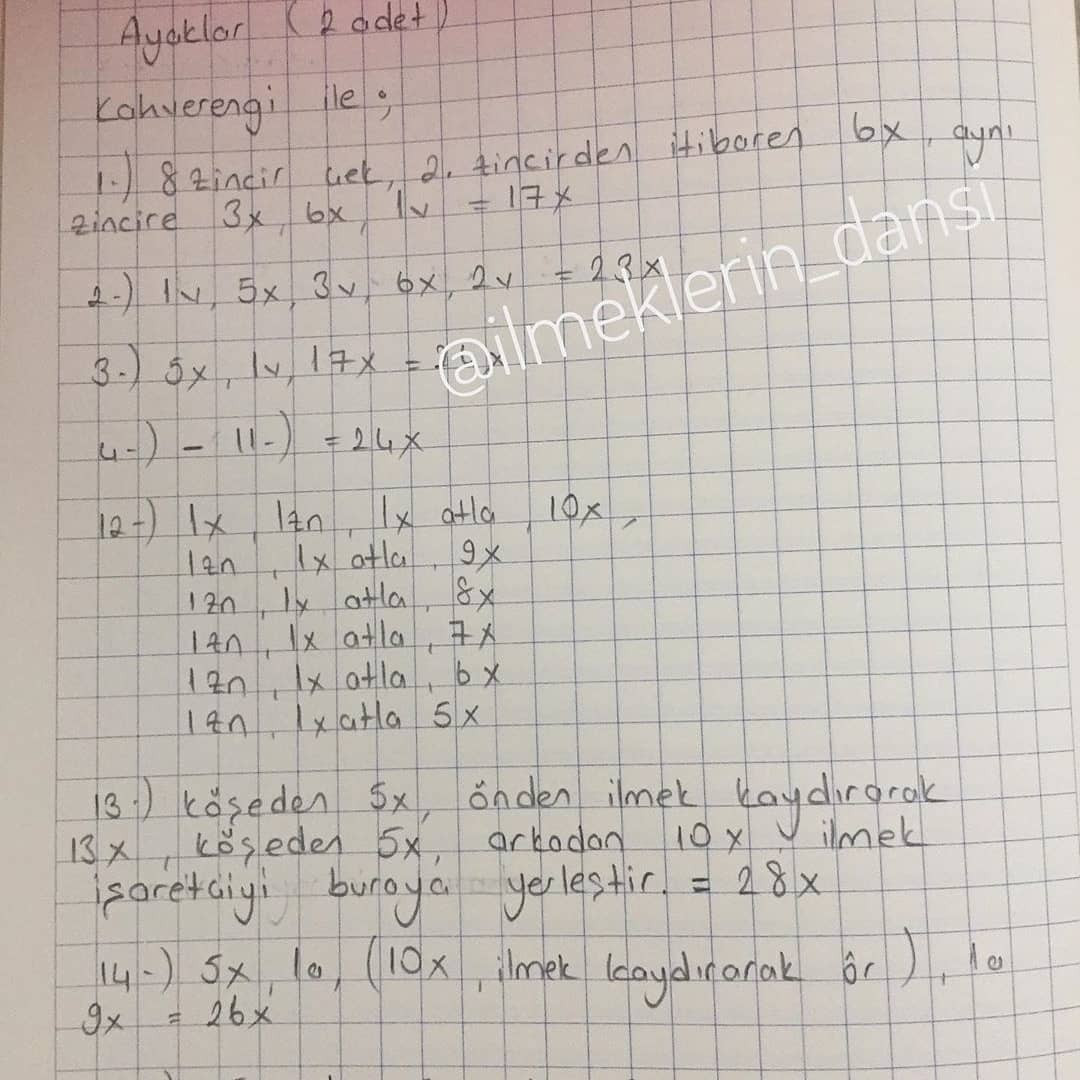 Ayaklar (2 adet)
Kahverengi ile ;
1-) 8 zincir çek, 2. zincirden itibaren 6x, aynı
zincire 3x, 6x, 1v = 17x
2-) 1v, 5x, 3v, 6x, 2v = 23x
@ilmeklerin_dansi
3-) 5x, 1v, 17x =
4-) - 11-) = 24x
12-) 1x, 1zn, 1x atla, 10x,
1zn, 1x atla, 9x
1zn, 1x atla, 8x
1zn, 1x atla, 7x
1zn, 1x atla, 6x
1zn, 1x atla 5x
13-) köşeden 5x, önden ilmek kaydırarak
13x, köşeden 5x, arkadan 10x, ilmek
işaretçiyi buraya yerleştir. = 28x
14-) 5x, 1a, (10x, ilmek kaydırarak ör), 1a
9x = 26x